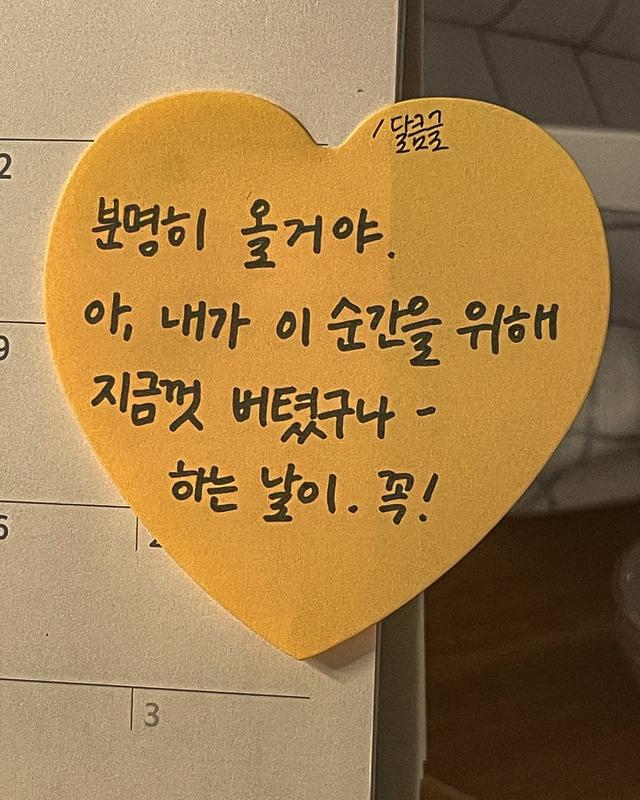 /달콤글
분명히 올거야.
아, 내가 이 순간을 위해
지금껏 버텼구나 -
하는 날이. 꼭!
2
9
6
2
3